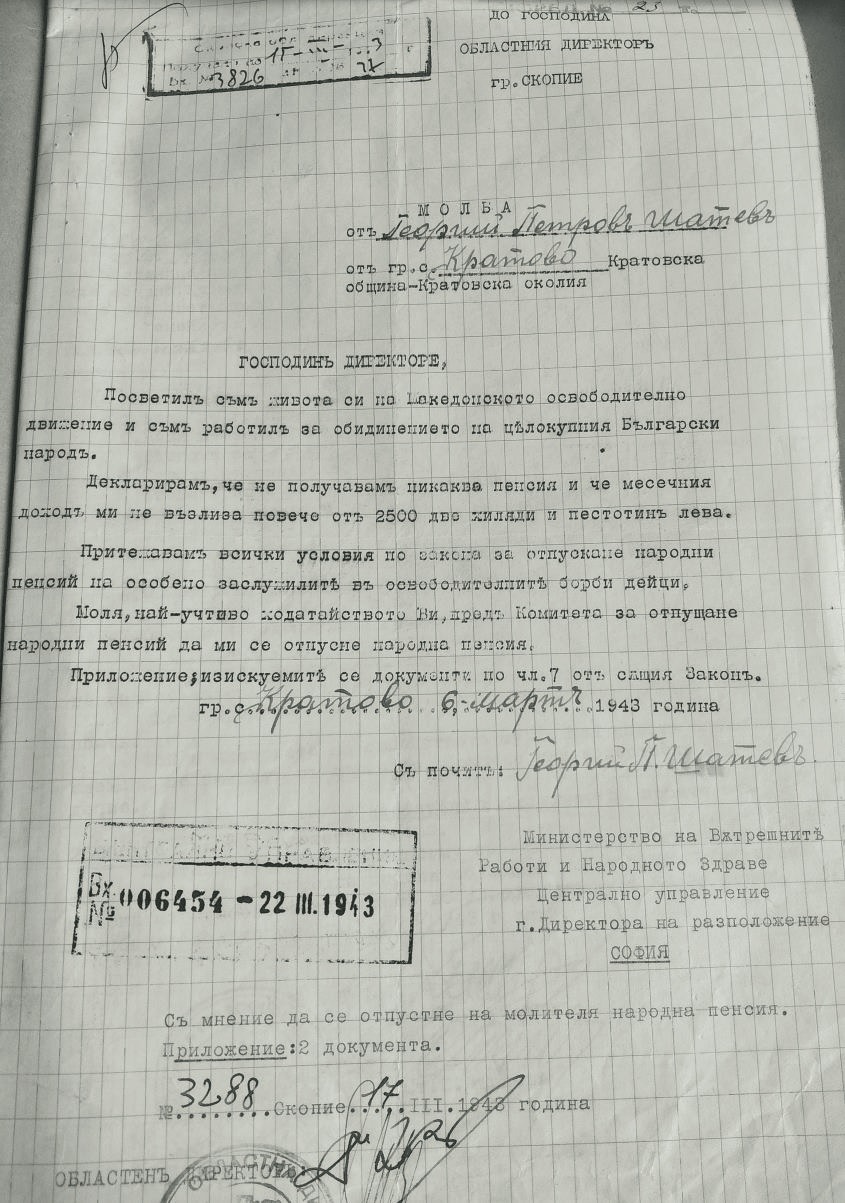 25
ДО ГОСПОДИНА
ОБЛАСТНИЯ ДИРЕКТОРЪ
гр.СКОПИЕ
15-III-
3826
М О Л Б А
отъ Георгий Петровъ Шатевъ
отъ гр.с. Кратово Кратовска
община-Кратовска околия
ГОСПОДИНЪ ДИРЕКТОРЕ,
Посветилъ съмъ живота си на Македонското освободително
движение и съмъ работилъ за обидинението на цѣлокупния Български
народъ.
Декларирамъ,че не получавамъ никаква пенсия и че месечния
доходъ ми не възлиза повече отъ 2500 две хиляди и пестотинъ лева.
Притежавамъ всички условия по закона за отпускане народни
пенсий на особено заслужилитѣ въ освободителнитѣ борби дейци.
Моля,най-учтиво ходатайството Ви,предъ Комитета за отпущане
народни пенсий да ми се отпусне народна пенсия.
Приложение;изискуемитѣ се документи по чл.7 отъ сѫщия Законъ.
гр.с. Кратово 6-мартъ 1943 година
Съ почитъ: Георгий П. Шатевъ.
Вх. № 006454 - 22 III.1943
Министерство на Вѫтрешнитѣ
Работи и Народното Здраве
Централно управление
г.Директора на разположение
СОФИЯ
Съ мнение да се отпустне на молителя народна пенсия.
Приложение:2 документа.
№ 3288 Скопие 17 III.1943 година
ОБЛАСТЕНЪ ДИРЕКТОРЪ: